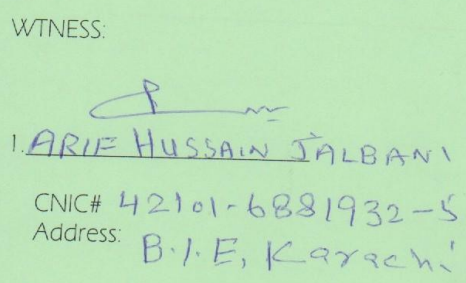 WTNESS:
1. ARIF HUSSAIN JALBANI
CNIC# 42101-6881932-5
Address: B.I.E, Karachi